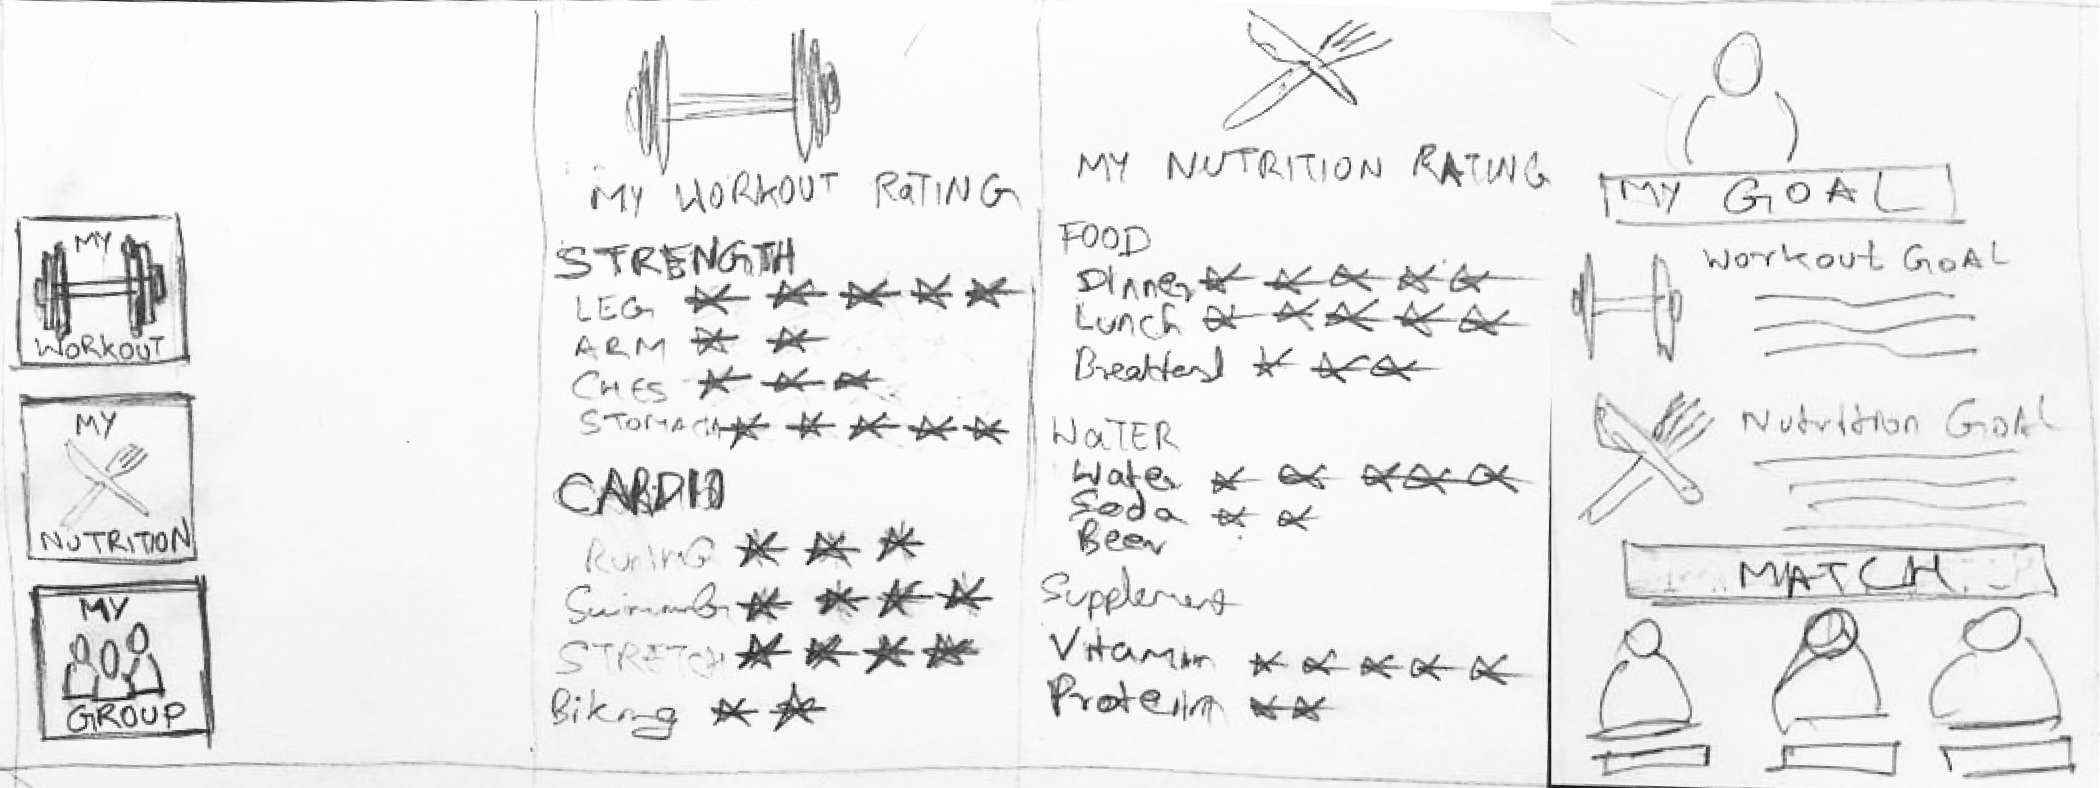 MY
WORKOUT
MY
NUTRITION
MY
GROUP
MY WORKOUT RATING
STRENGTH
LEG
ARM
CHES
STOMACH
CARDIO
RUNING
STRETCH
Biking
MY NUTRITION RATING
FOOD
Dinner
Lunch
WATER
Water
Soda
Beer
Supplement
Vitamin
Protein
MY GOAL
Workout GOAL
Nutrition GOAL
MATCH